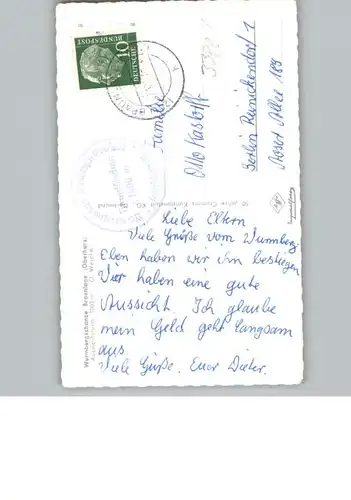 10
DEUTSCHE
BUNDESPOST
Familie
Otto Kastorff
Berlin Reinickendorf 1
Aroser Allee 189
Liebe Eltern
Viele Grüße vom Wurmberg.
Eben haben wir ihn bestiegen
Wir haben eine gute
Aussicht. Ich glaube
mein Geld geht langsam
aus.
Viele Grüße. Euer Dieter.
Wurmbergschanze Braunlage (Oberharz)